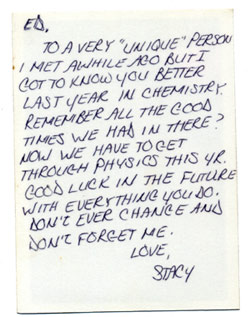 ED,
TO A VERY "UNIQUE" PERSON
I MET AWHILE AGO BUT I
GOT TO KNOW YOU BETTER
LAST YEAR IN CHEMISTRY.
REMEMBER ALL THE GOOD
TIMES WE HAD IN THERE?
NOW WE HAVE TO GET
THROUGH PHYSICS THIS YR.
GOOD LUCK IN THE FUTURE
WITH EVERYTHING YOU DO.
DON'T EVER CHANGE AND
DON'T FORGET ME.
LOVE,
STACY